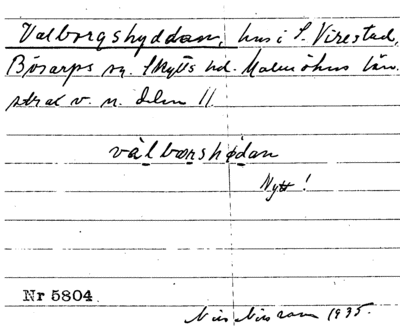 Valborgshyddan, hus i S. Virestad,
Bösarps sn. Skytts hd. Malmöhus län.
strax v. n. delen 11
vàlborshødan
Nytt!
Nr 5804
Nils Nilsson 1935.